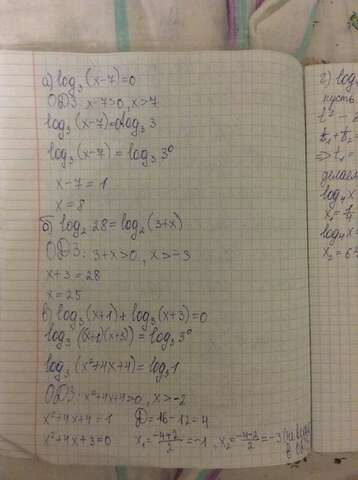 а) log₃(x-7)=0
ОДЗ: x-7>0, x>7
log₃(x-7)=0log₃3
log₃(x-7)=log₃3⁰
x-7=1
x=8
б) log₂28=log₂(3+x)
ОДЗ: 3+x>0, x>-3
x+3=28
x=25
в) log₃(x+1)+log₃(x+3)=0
log₃((x+1)(x+3))=log₃3⁰
log₃(x²+4x+4)=log₃1
ОДЗ: x²+4x+4>0, x>-2
x²+4x+4=1 D=16-12=4
x²+4x+3=0 x₁=(-4+2)/2=-1, x₂=(-4-2)/2=-3 (не
в ОДЗ)
г) log
пусть
t²-
t₁+t₂=
⇒t₁=
делаем
log₄x
x₁=
log₄x=
x₂=